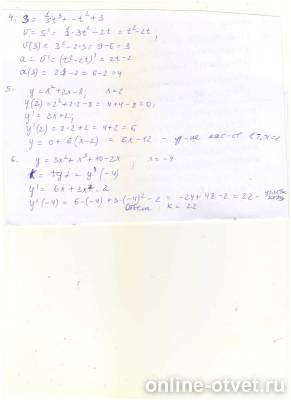 4. S = 1/3 t³ - t² + 3
v = s' = 1/3 · 3t² - 2t = t² - 2t;
v(3) = 3² - 2·3 = 9 - 6 = 3
a = v' = (t² - 2t)' = 2t - 2
a(3) = 2·3 - 2 = 6 - 2 = 4
5. y = x² + 2x - 8; x = 2
y(2) = 2² + 2·2 - 8 = 4 + 4 - 8 = 0;
y' = 2x + 2;
y'(2) = 2·2 + 2 = 4 + 2 = 6
y = 0 + 6(x - 2) = 6x - 12 - ур-ие кас-ой
6. y = 3x² + x³ + 10 - 2x ; x = -4
k = tg α = y'(-4)
y' = 6x + 3x² - 2
y'(-4) = 6·(-4) + 3·(-4)² - 2 = -24 + 48 - 2 = 22 -
Ответ: k = 22
online-otvet.ru